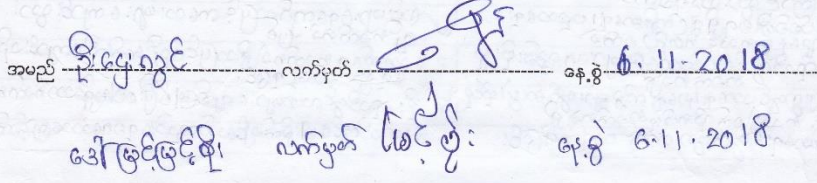 အမည် ဦးဌေးလွင် လက်မှတ် နေ့စွဲ 6.11-2018
ဒေါ်မြင့်မြင့်စိုး လက်မှတ် နေ့စွဲ 6.11.2018